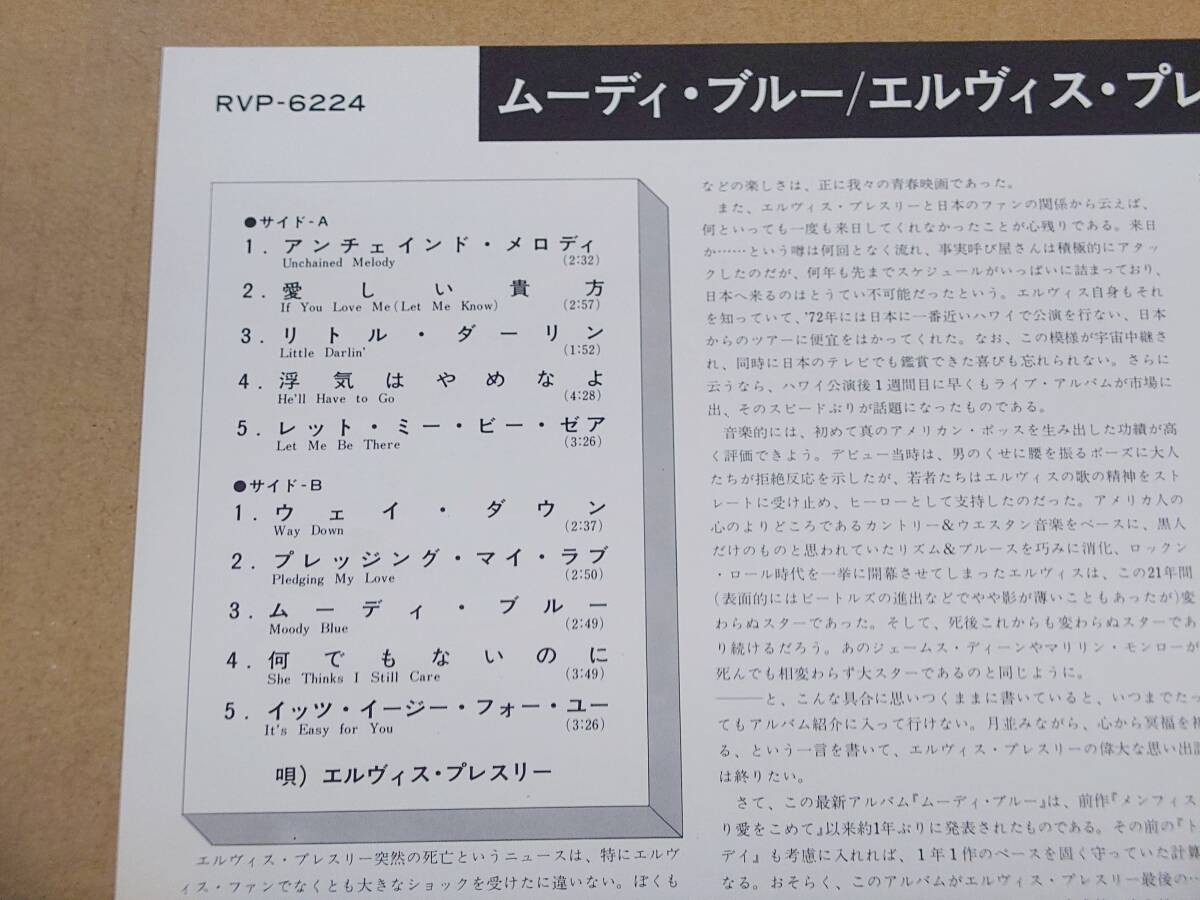 RVP-6224
ムーディ・ブルー/エルヴィス・プレ
●サイド-A
1. アンチェインド・メロディ
Unchained Melody (2:32)
2. 愛しい貴方
If You Love Me (Let Me Know) (2:57)
3. リトル・ダーリン
Little Darlin' (1:52)
4. 浮気はやめなよ
He'll Have to Go (4:28)
5. レット・ミー・ビー・ゼア
Let Me Be There (3:26)
●サイド-B
1. ウェイ・ダウン
Way Down (2:37)
2. プレッジング・マイ・ラブ
Pledging My Love (2:50)
3. ムーディ・ブルー
Moody Blue (2:49)
4. 何でもないのに
She Thinks I Still Care (3:49)
5. イッツ・イージー・フォー・ユー
It's Easy for You (3:26)
唄) エルヴィス・プレスリー
エルヴィス・プレスリー突然の死亡というニュースは、特にエルヴ
ィス・ファンでなくとも大きなショックを受けたに違いない。ぼくも
などの楽しさは、正に我々の青春映画であった。
また、エルヴィス・プレスリーと日本のファンの関係から云えば、
何といっても一度も来日してくれなかったことが心残りである。来日
か……という噂は何回となく流れ、事実呼び屋さんは積極的にアタッ
クしたのだが、何年も先までスケジュールがいっぱいに詰まっており、
日本へ来るのはとうてい不可能だったという。エルヴィス自身もそれ
を知っていて、'72年には日本に一番近いハワイで公演を行ない、日本
からのツアーに便宜をはかってくれた。なお、この模様が宇宙中継さ
れ、同時に日本のテレビでも鑑賞できた喜びも忘れられない。さらに
云うなら、ハワイ公演後1週間目に早くもライブ・アルバムが市場に
出、そのスピードぶりが話題になったものである。
音楽的には、初めて真のアメリカン・ポップスを生み出した功績が高
く評価できよう。デビュー当時は、男のくせに腰を振るポーズに大人
たちが拒絶反応を示したが、若者たちはエルヴィスの歌の精神をスト
レートに受け止め、ヒーローとして支持したのだった。アメリカ人の
心のよりどころであるカントリー&ウエスタン音楽をベースに、黒人
だけのものと思われていたリズム&ブルースを巧みに消化、ロックン
・ロール時代を一挙に開幕させてしまったエルヴィスは、この21年間
(表面的にはビートルズの進出などでやや影が薄いこともあったが)変
わらぬスターであった。そして、死後これからも変わらぬスターであ
り続けるだろう。あのジェームス・ディーンやマリリン・モンローが
死んでも相変わらず大スターであるのと同じように。
――と、こんな具合に思いつくままに書いていると、いつまでたっ
てもアルバム紹介に入って行けない。月並みながら、心から冥福を祈
る、という一言を書いて、エルヴィス・プレスリーの偉大な思い出話
は終りたい。
さて、この最新アルバム『ムーディ・ブルー』は、前作『メンフィス
り愛をこめて』以来約1年ぶりに発表されたものである。その前の『ト
デイ』も考慮に入れれば、1年1作のペースを固く守っていた計算
なる。おそらく、このアルバムがエルヴィス・プレスリー最後の…